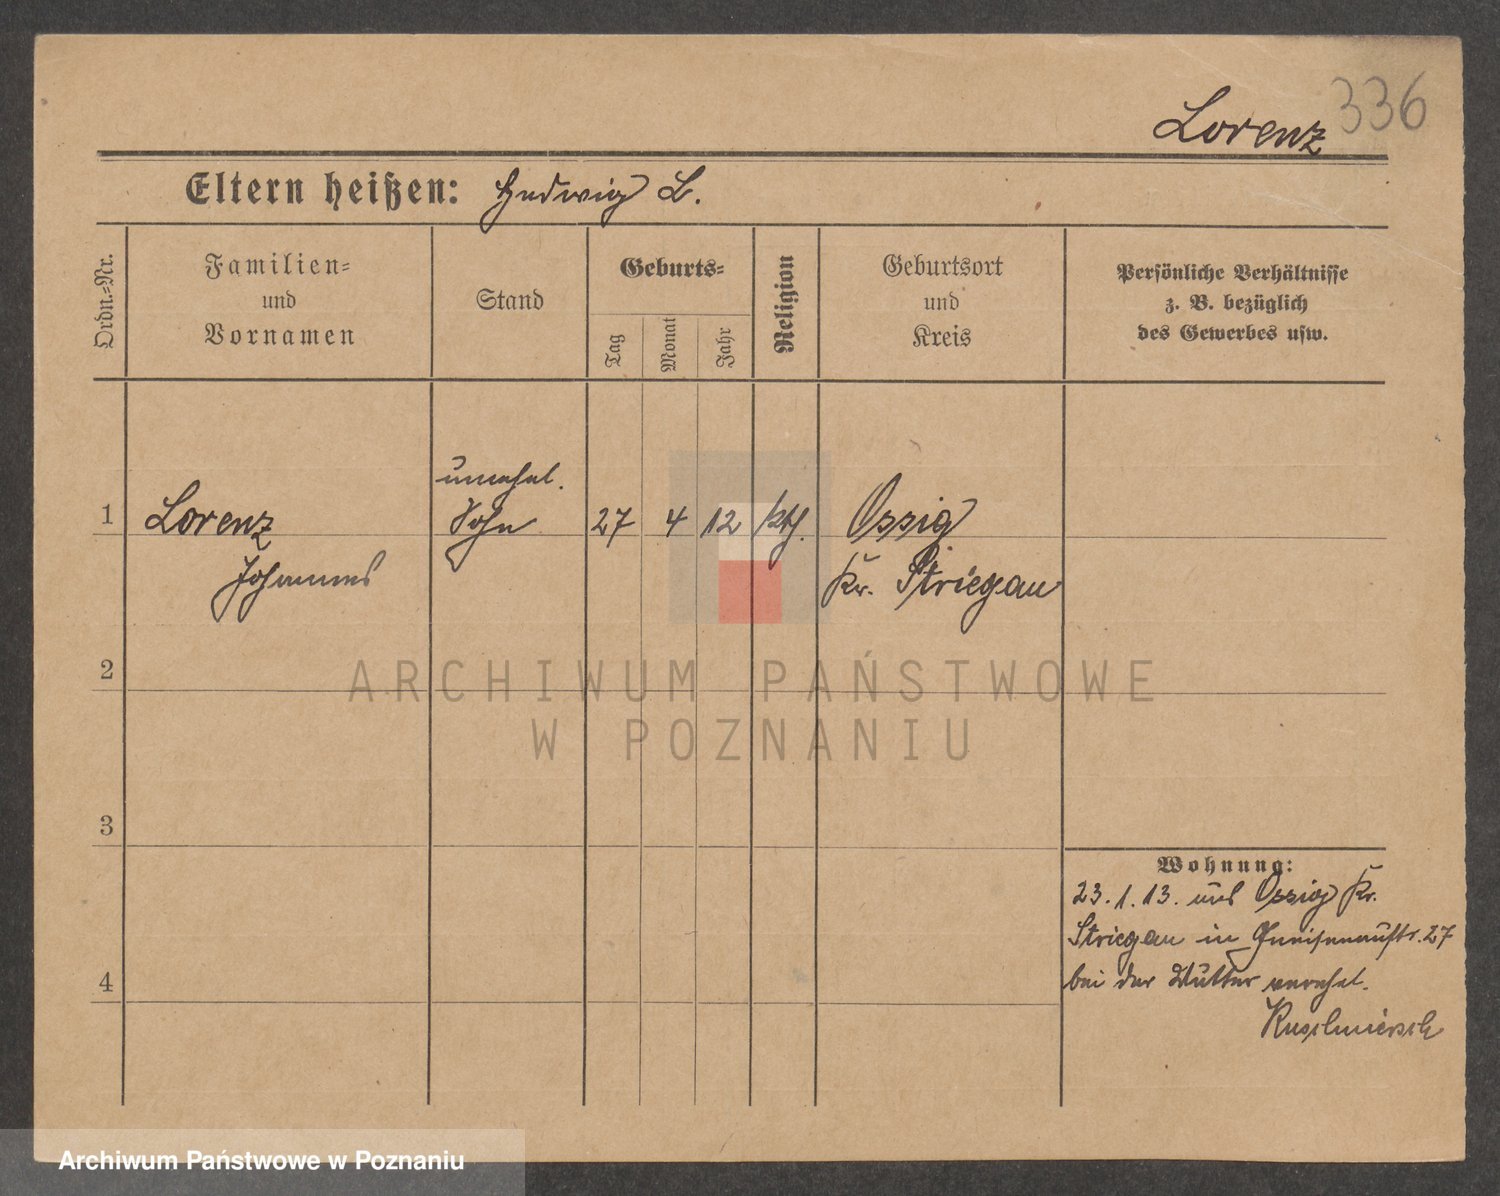 336
Lorenz
Eltern heißen: Hedwig L.
Ordn.=Nr.
Familien=
und
Vornamen
Stand
Geburts=
Tag
Monat
Jahr
Religion
Geburtsort
und
Kreis
Persönliche Verhältnisse
z. B. bezüglich
des Gewerbes usw.
unehel.
1 Lorenz Sohn 27 4 12 kth. Ossig
Johannes Kr. Striegau
2
3
4
Wohnung:
23.1.13. aus Ossig Kr.
Striegau in Gneisenaustr. 27
bei der Mutter verehel.
ARCHIWUM PAŃSTWOWE
W POZNANIU
Archiwum Państwowe w Poznaniu